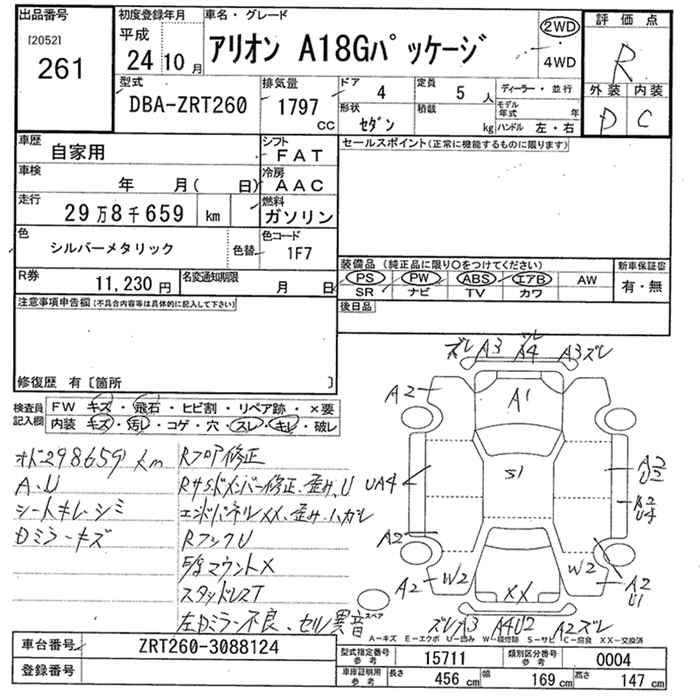 出品番号
[2052]
261
初度登録年月
平成
24年10月
車名・グレード
アリオン A18Gパッケージ
2WD
・
4WD
評価点
R
外装 内装
D C
型式
DBA-ZRT260
排気量
1797
CC
ドア
4
形状
セダン
定員
5 人
積載
kg
ディーラー・並行
モデル年式 年
ハンドル 左・右
車歴
自家用
シフト
FAT
車検
年 月( 日)
冷房
AAC
走行
29万8千659 km
燃料
ガソリン
色
シルバーメタリック
色替
色コード
1F7
R券
11,230円
名変通知期限
月 日
セールスポイント(正常に機能するものに限ります)
装備品(純正品に限り○をつけてください)
PS PW ABS エアB AW
SR ナビ TV カワ
新車保証書
有・無
後日品
注意事項申告欄(不具合内容等は具体的に記入して下さい)
修復歴 有〔箇所 〕
検査員記入欄
FW キズ・飛石・ヒビ割・リペア跡・×要
内装 キズ・汚レ・コゲ・穴・スレ・キレ・破レ
オド298659km
A.U
シートキレ・シミ
Dミラーキズ
Rフロア修正
RサイドメンバーU修正、歪み、U
エンドパネルXX、歪み、ハガレ
RフックU
スタッドレスT
左Dミラー不良、セル異音
ズレ A3 A4 A3 ズレ
A2
A1
S1
UA4
A2 U2
A2 U4
A2
A2 W2
W2 A2 U1
XX
スペア
ズレ A3 A4U2 A2 ズレ
A-キズ E-エクボ U-凹み W-補修跡 S-サビ C-腐食 XX-交換済
車台番号
ZRT260-3088124
登録番号
型式指定番号 参考
15711
類別区分番号 参考
0004
車庫証明用 参考
長さ 456 cm 幅 169 cm 高さ 147 cm